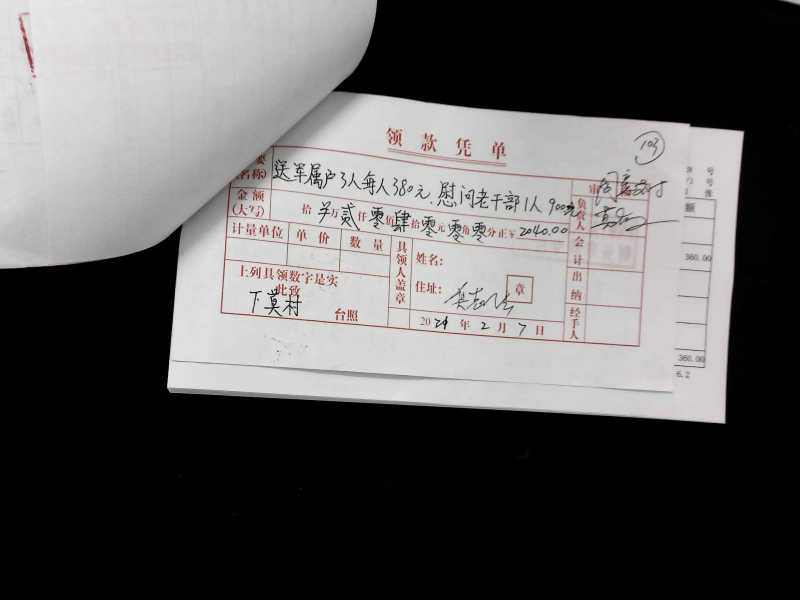 领款凭单
103
要
(名称)
送军属户3人每人380元.慰问老干部1人900元
审
金额
(大写)
拾 万贰仟零佰肆拾零元零角零分正¥2040.00
负责人
计量单位 单价 数量
具领人盖章
姓名:
住址:
章
会计
出纳
经手人
上列具领数字是实
此致
下莫村 台照
2021年2月7日
号
号
额
360.00
360.00
6.2